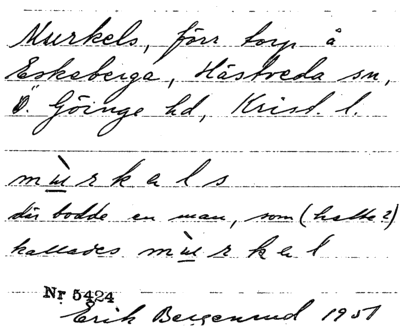 Murkels, förr torp å
Eskeberga, Hästveda sn,
Ö. Göinge hd, Krist. l.
mùrkels
där bodde en man, som (hette?)
kallades mùrkel
Nr 5424
Erik Bergenrud 1951